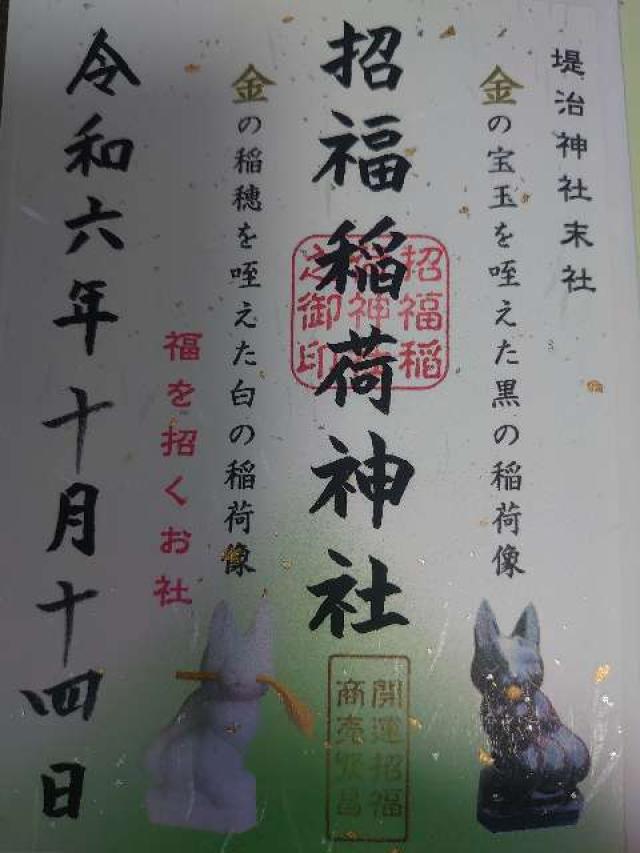 堤治神社末社
金の宝玉を咥えた黒の稲荷像
招福稲荷神社
招福稲
荷神社
之御印
開運招福
商売繁昌
金の稲穂を咥えた白の稲荷像
福を招くお社
令和六年十月十四日